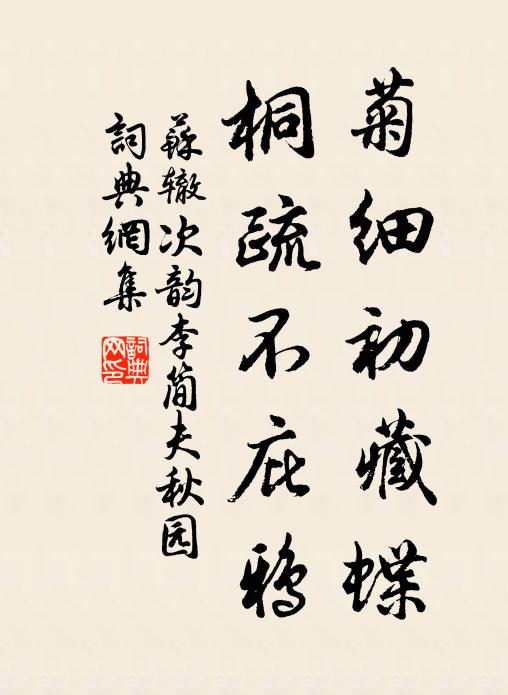 菊细初藏蝶
桐疏不庇鸦
蘇辙次韵李简夫秋园
詞典網集
詞典
网印